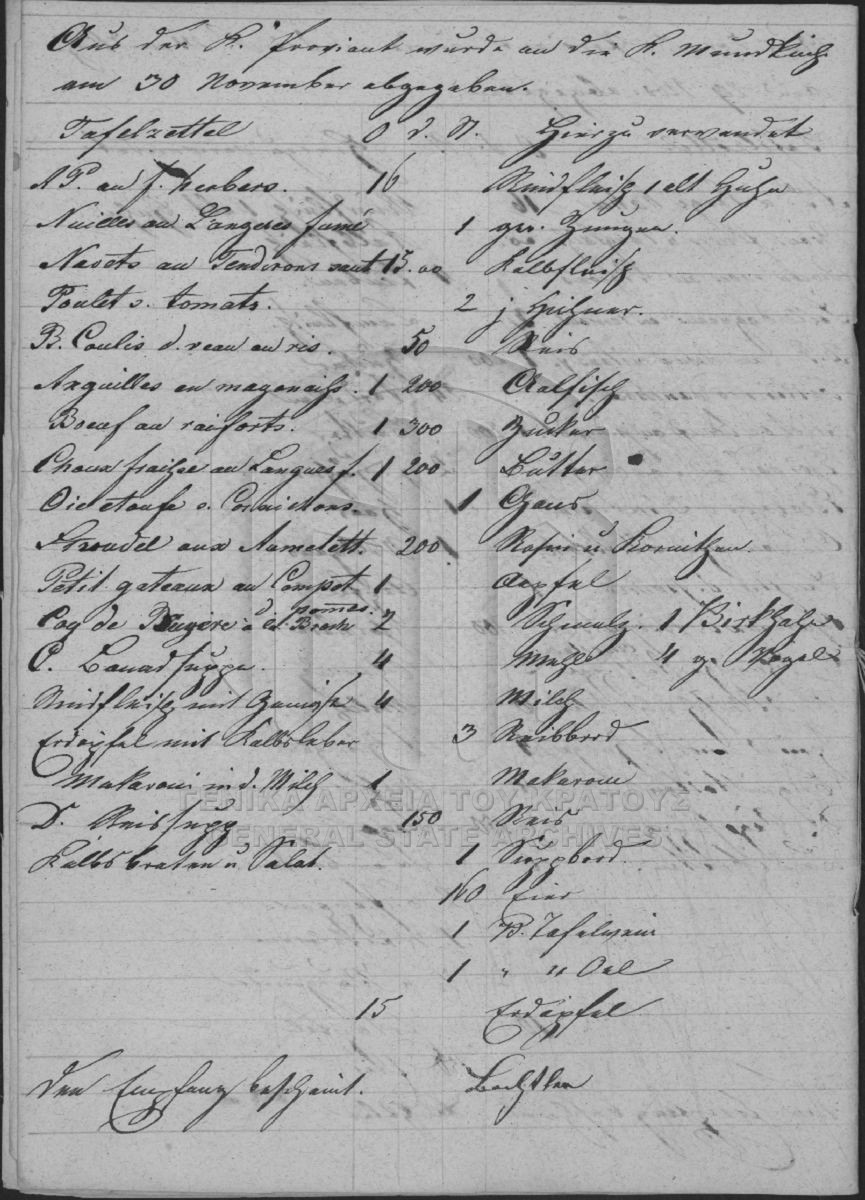 Aus der K. Proviant wurde an die K. Mundküch
am 30 November abgegeben.
Tafelzettel O d. St. Hierzu verwendet
P. au f. herbers. 16 Rindfleisch 1 alt Huhn
Nuilles au Langeres fumé 1 ger. Zungen.
Navets au Tendrons saut 15.00 Kalbfleisch
Poulet s. tomats. 2 j Hühner.
B. Coulis d. veau au ris. 50 Reis
Anguilles en magonaihs. 1 200 Aalfisch
Boeuf au raiforts. 1 300 Zucker
Choux fraihse au Langues f. 1 200 Butter
Oie etoufe s. Cornichons. 1 Gans
Stroudel aux Aamelett. 200 Rosin u Kornitzen.
Petit gateaux au Compot 1 Aepfel
Coq de Bugere à d. pommes. Brostr 2 Schmalz. 1 Birkhahn
C. Banadsuppe. 4 Mehl 4 g. Vögel
Rindfleisch mit Gemüse 4 Milch
Erdäpfel mit Kalbsleber 3 Reibbrod
Makaroni in d. Milch 1 Makaroni
ΓΕΝΙΚΑ ΑΡΧΕΙΑ ΤΟΥ ΚΡΑΤΟΥΣ
D. Reissupp 150 Reis
GENERAL STATE ARCHIVES
Kalbsbraten u Salat. 1 Suppbrod.
160 Eier
1 B. Tafelwein
1 " " Oel
15 Erdäpfel
Den Empfang bescheint.